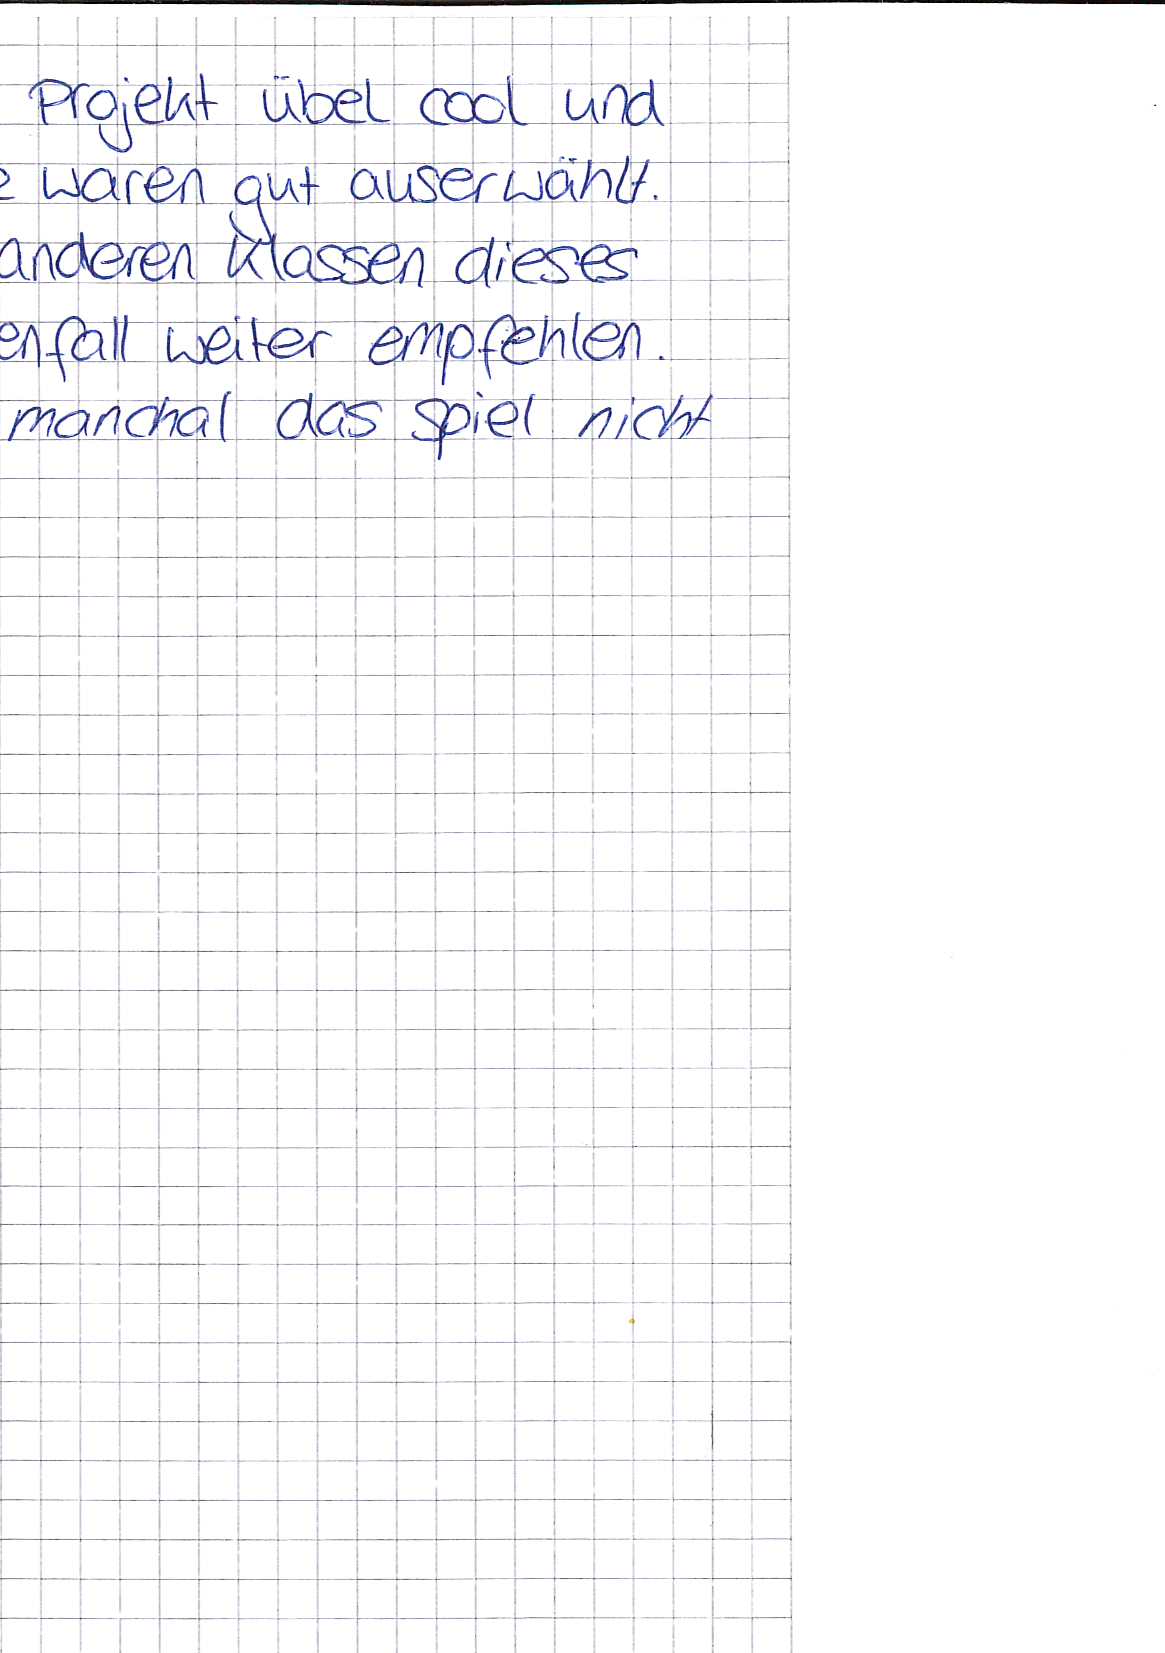 Projekt übel cool und
e waren gut auserwählt.
anderen Klassen dieses
enfall weiter empfehlen.
manchal das spiel nicht